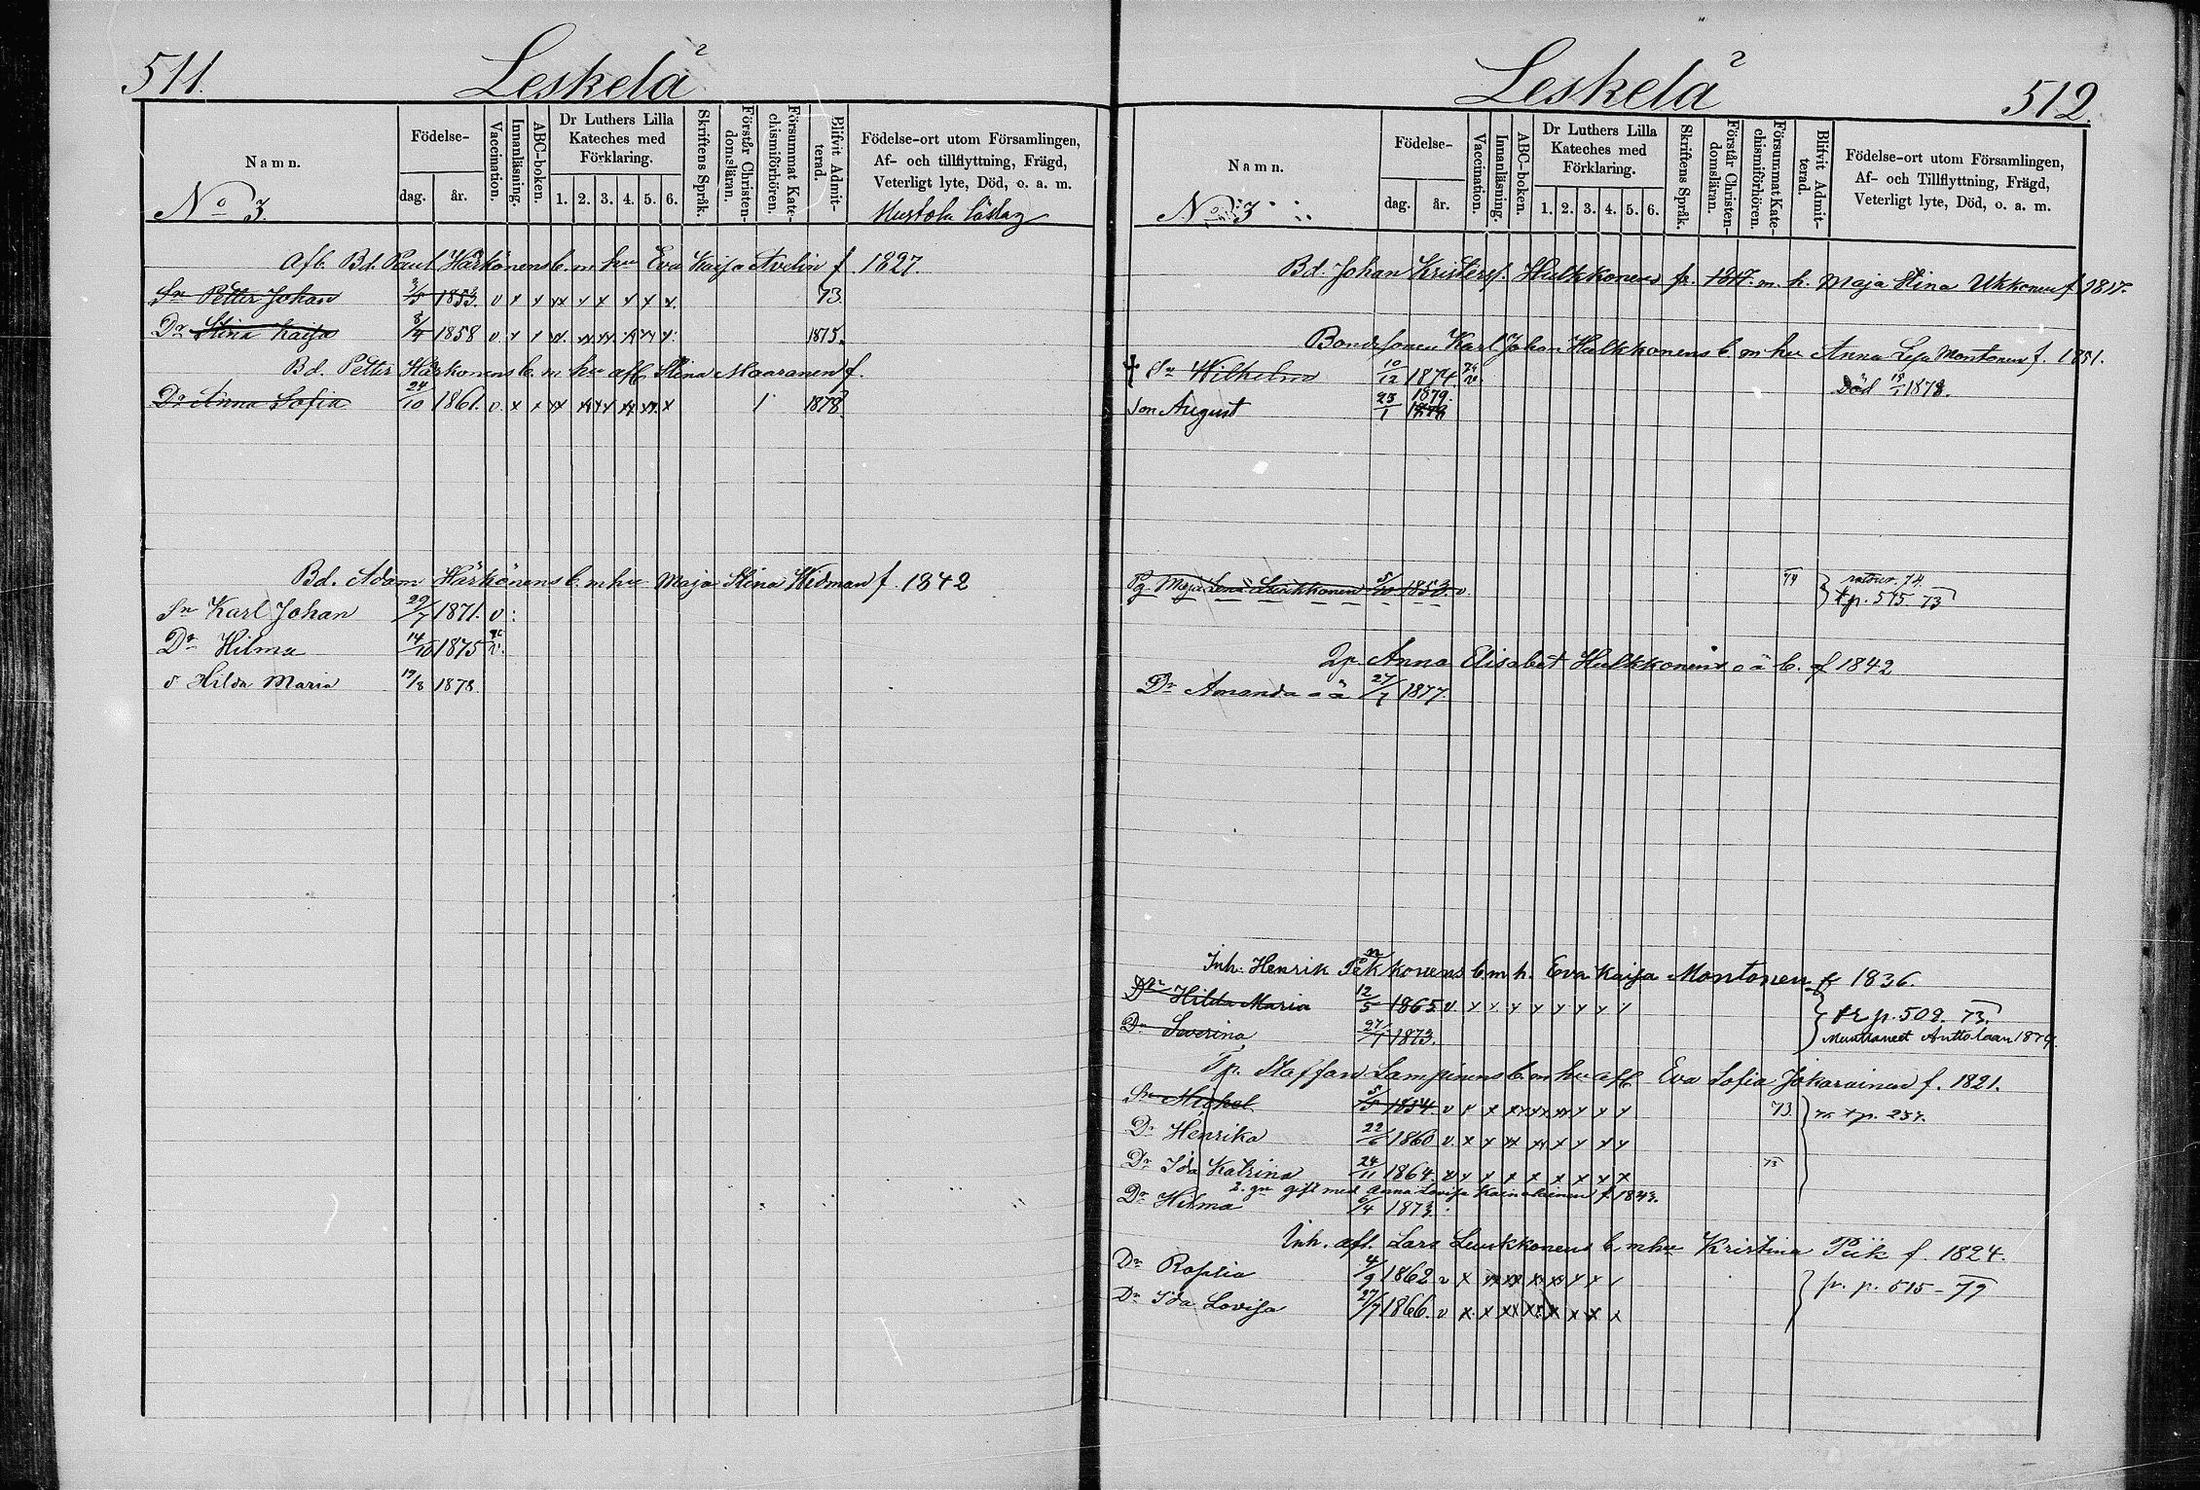 511.
Leskelä
Namn.
Födelse-
dag.
år.
Vaccination.
Innanläsning.
ABC-boken.
Dr Luthers Lilla
Kateches med
Förklaring.
1. 2. 3. 4. 5. 6.
Skriftens Språk.
Förstår Christen-
domsläran.
Försummat Kate-
chismiförhören.
Blifvit Admit-
terad.
Födelse-ort utom Församlingen,
Af- och tillflyttning, Frägd,
Veterligt lyte, Död, o. a. m.
No 3.
Afl. Bd. Paul Härkönens b. m hu Eva Kaisa Avelin f. 1827.
Sn Petter Johan 3/5 1853. v x x xx x x x x x. 73.
Dr Stina Kaisa 8/4 1858 v x 1875.
Bd. Petter Härkönens b. m hu afl. Stina Maaranen f.
Dr Anna Sofia 24/10 1861. v. x x xx 1 1878.
Bd. Adam Härkönens b. m hu Maja Stina Widman f 1842
Sn Karl Johan 29/7 1871. v.
Dr Hilma 14/10 1875 v.
d Hilda Maria 19/8 1878.
Leskelä
512.
Namn.
Födelse-
dag.
år.
Vaccination.
Innanläsning.
ABC-boken.
Dr Luthers Lilla
Kateches med
Förklaring.
1. 2. 3. 4. 5. 6.
Skriftens Språk.
Förstår Christen-
domsläran.
Försummat Kate-
chismiförhören.
Blifvit Admit-
terad.
Födelse-ort utom Församlingen,
Af- och Tillflyttning, Frägd,
Veterligt lyte, Död, o. a. m.
No 3
Bd. Johan Kristersf. Hulkkonens fr. 1817. m. h. Maja Stina Ukkonen f 1817.
Bondesonen Karl Johan Hulkkonens b m hu Anna Lisa Montonen f. 1851.
Sn Wilhelm 10/12 1874 v Död 1878.
son August 23/1 1879.
Pg. Maja Lena Luukkonen 5/10 1853. v. 74 retour. 74.
t p. 515. 73
Anna Elisabet Hulkkonens o ä b. f 1842
Dr Amanda o ä 27/7 1877.
Inh. Henrik Pekkonens b m h. Eva Kaisa Montonen f 1836.
Dr Hilda Maria 12/5 1865 v. x x. x x x x x x
Dr Severina 27/7 1873. fr p. 509. 73.
Muuttaneet Anttolaan 1879.
Staffan Lampinens b. m hu afl Eva Sofia Jokarainen f. 1821.
Sn Mickel 5/5 1854. v 73. t p. 257.
Dr Henrika 22/6 1860 v. x x xx
Dr Ida Katrina 24/11 1864. 73
2. gn gift med Anna Lovisa Kainulainen f. 1843.
Dr Hilma 6/4 1873.
Inh. afl. Lars Luukkonens b m hu Kristina Piik f. 1824.
Dr Rosalia 4/9 1862 v x fr. p. 515 - 79
Dr Ida Lovisa 27/7 1866. v x x